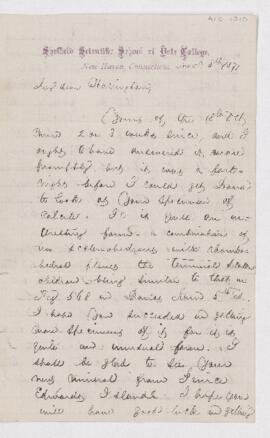 Sheffield Scientific School of Yale College,
New Haven, Connecticut, Nov 8th 1871
My dear Harrington,
Yours of the 16th Oct
came 2 or 3 weeks since, and I
ought to have answered it more
promptly but it was a fort-
night before I could get round
to look at your specimen of
calcite. It is quite an in-
teresting form – a combination of
two scalenohedrons with rhombo-
hedral planes the terminal scalen-
ohedron being similar to that in
Fig 568 in Dana's Min 5th ed.
I hope you succeeded in getting
more specimens of it for it is
quite an unusual form. I
shall be glad to see your
new mineral from Prince
Edwards Island. I hope you
will have good luck in getting